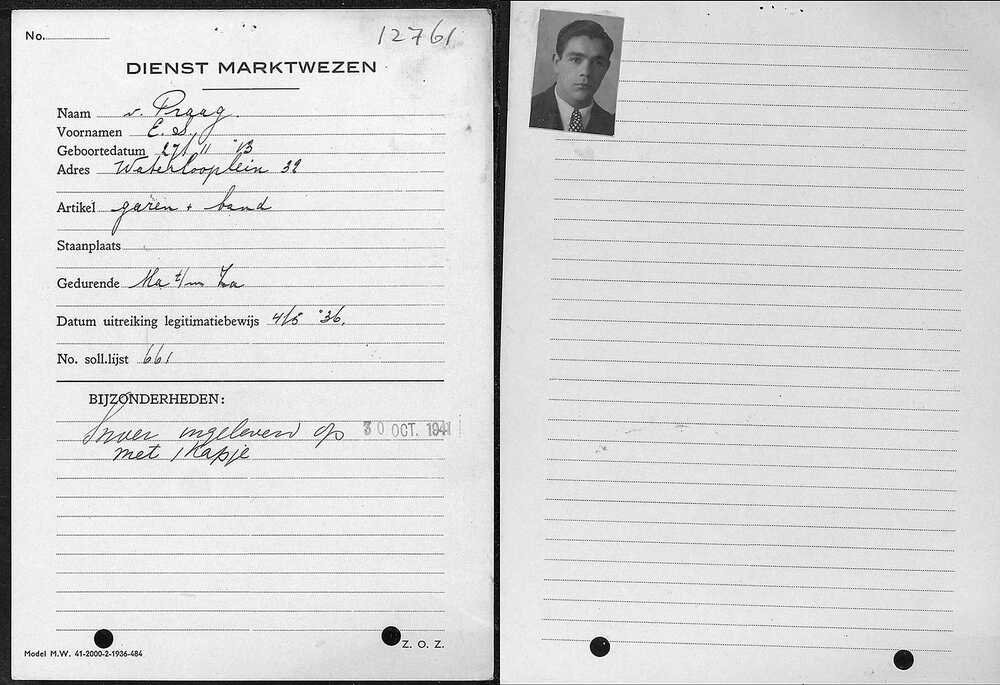 No.
12761
DIENST MARKTWEZEN
Naam v. Praag.
Voornamen E. S.
Geboortedatum 27/11 '13
Adres Waterlooplein 32
Artikel garen + band
Staanplaats
Gedurende Ma t/m Za
Datum uitreiking legitimatiebewijs 4/6 '36.
No. soll.lijst 661
BIJZONDERHEDEN:
ingeleverd op 30 OCT. 1941
met 1 Kapje
Model M.W. 41-2000-2-1936-484
Z. O. Z.